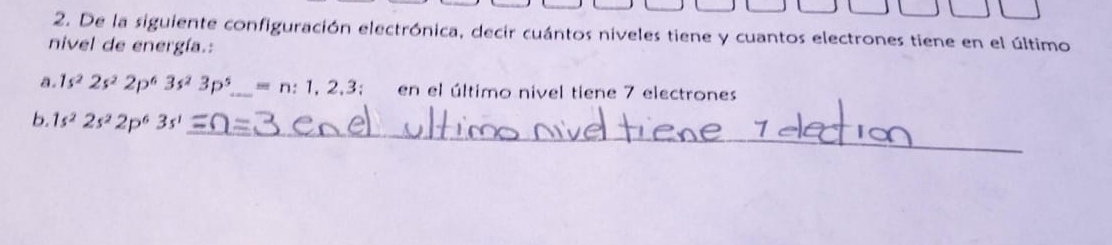 2. De la siguiente configuración electrónica, decir cuántos niveles tiene y cuantos electrones tiene en el último
nivel de energía.:
a.1s² 2s² 2p⁶ 3s² 3p⁵__ = n: 1, 2,3; en el último nivel tiene 7 electrones
b.1s² 2s² 2p⁶ 3s¹ =n=3 en el ultimo nivel tiene 1 electron